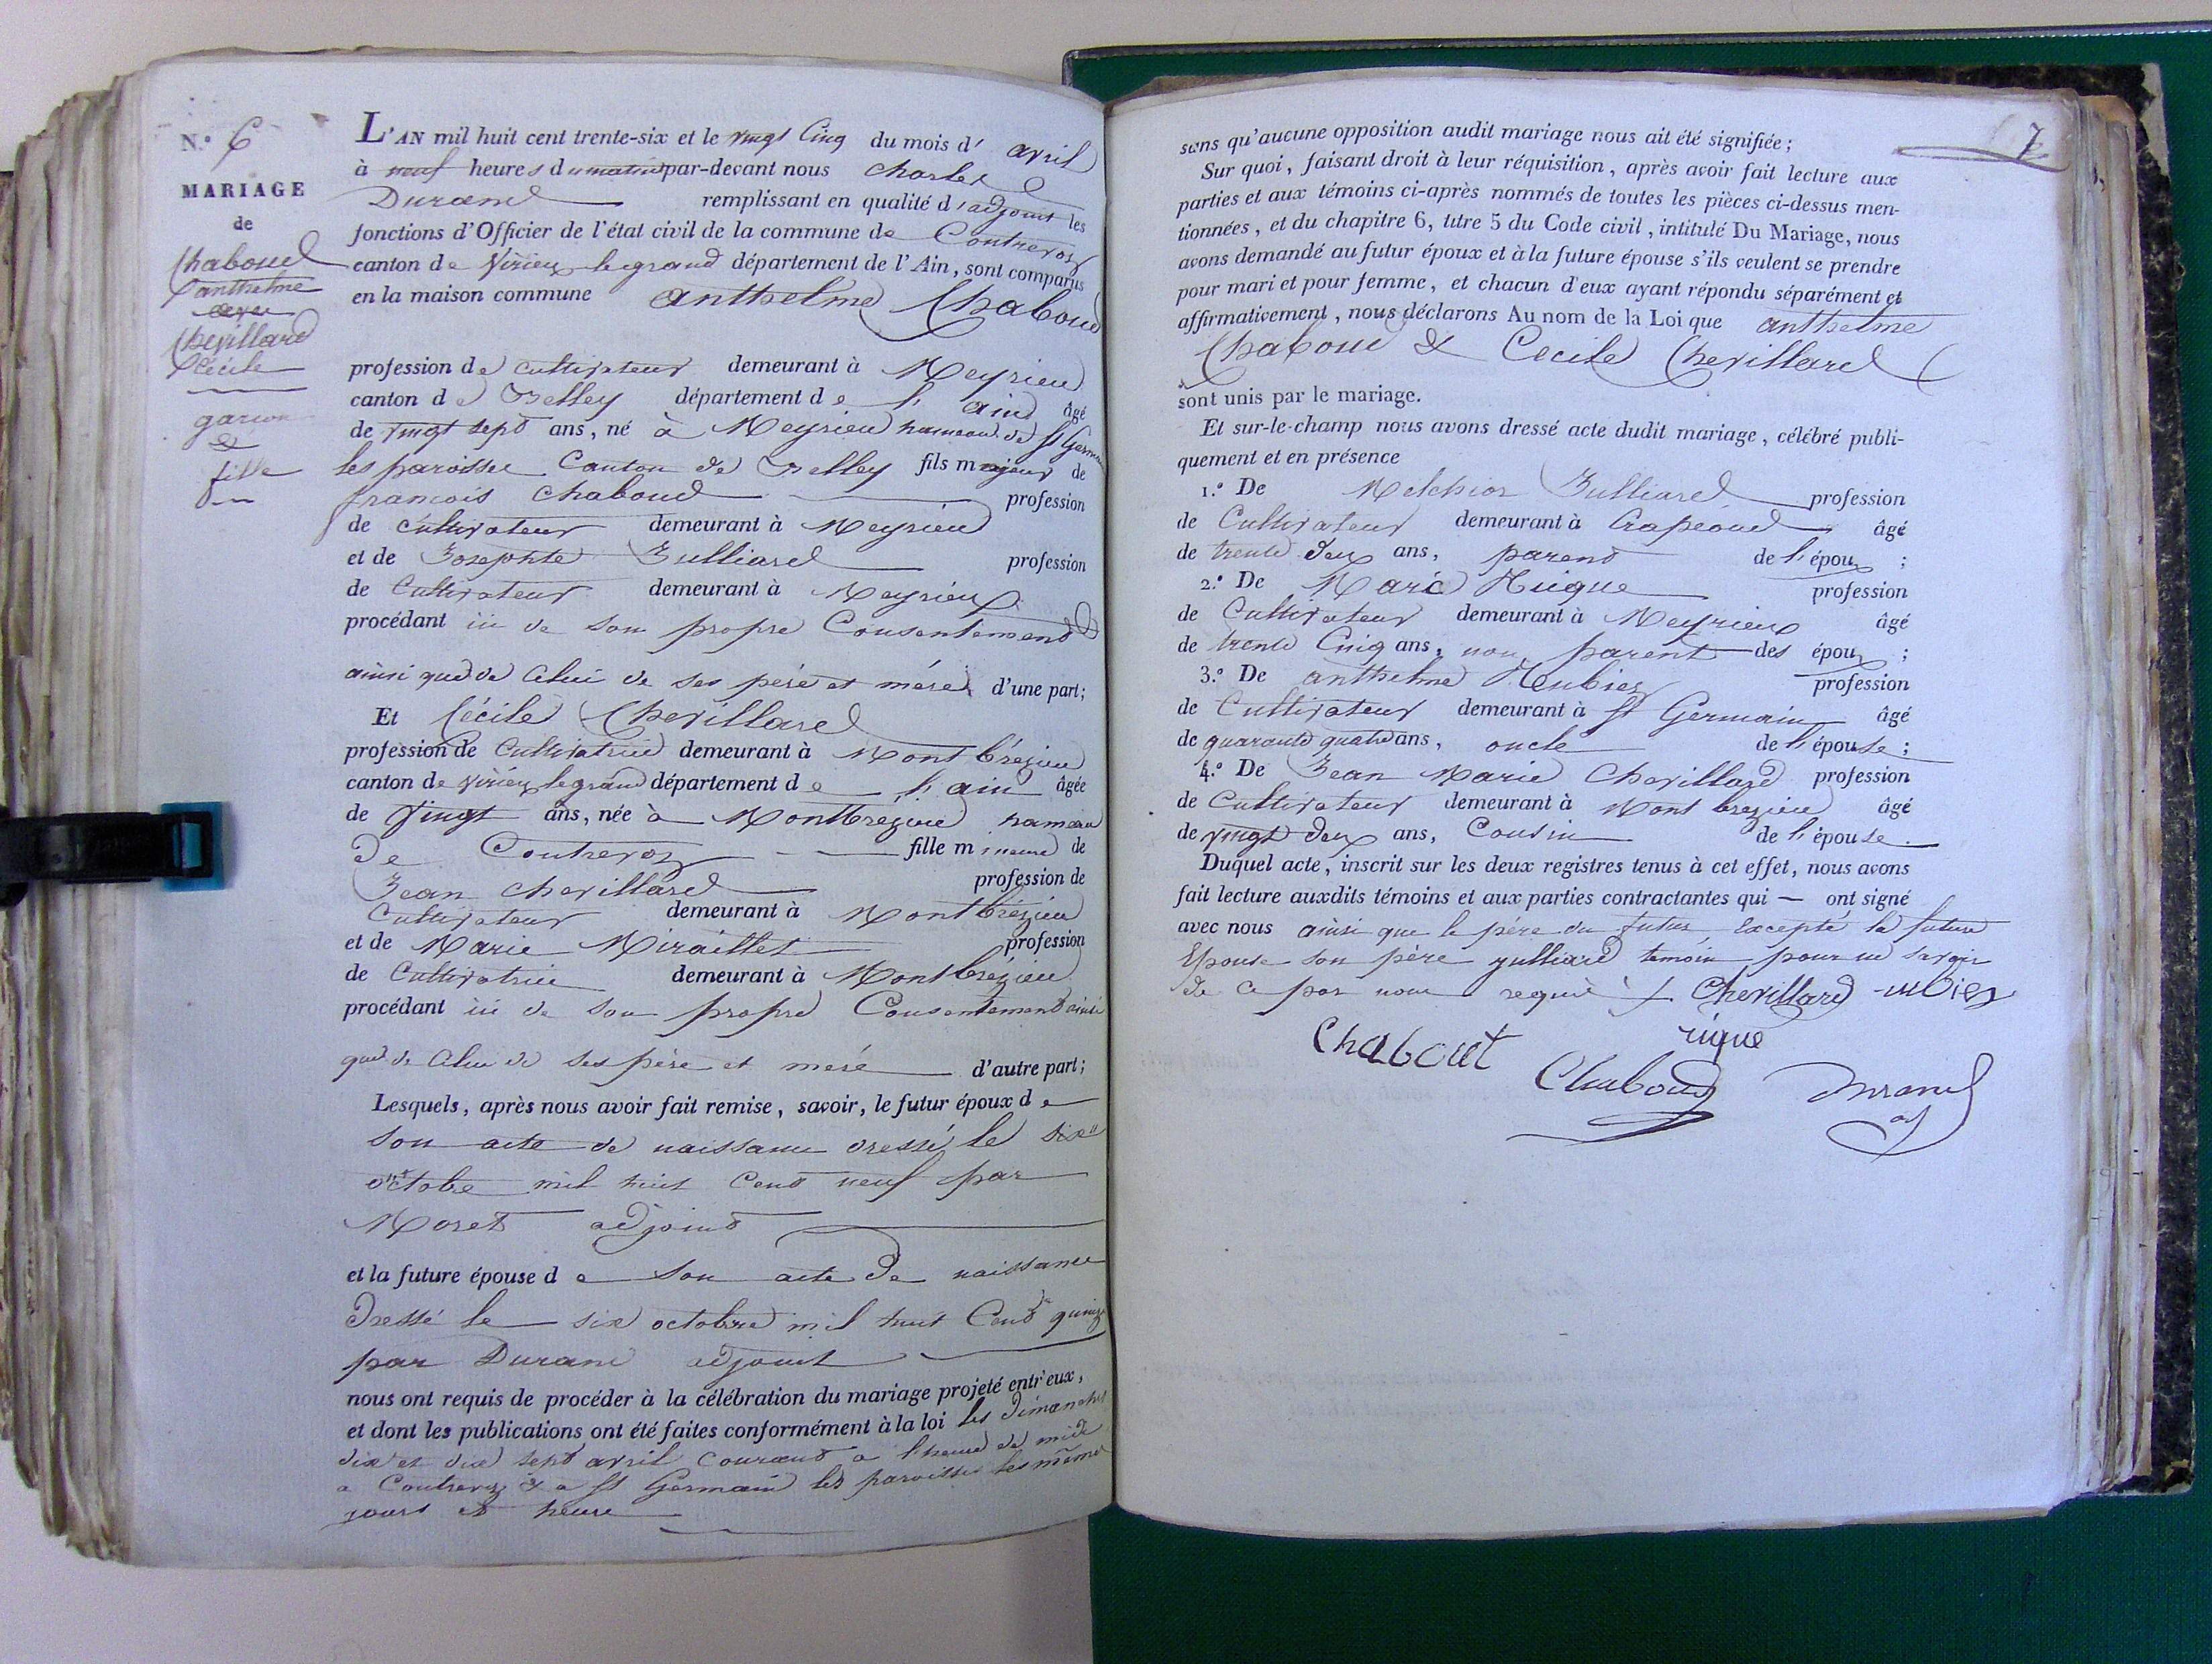 N.° 6
MARIAGE
de
Chaboud
anthelme
avec
Chevillard
Cécile
garcon
&
fille
L'AN mil huit cent trente-six et le vingt Cinq du mois d' avril
à neuf heures du matin par-devant nous Charles
Durand remplissant en qualité d'adjoint les
fonctions d'Officier de l'état civil de la commune de Contrevoz
canton de Virieu le grand département de l'Ain, sont comparus
en la maison commune anthelme Chaboud
profession de Cultivateur demeurant à Meyrieu
canton de Belley département de l'ain âgé
de vingt sept ans, né à Meyrieu hameau de St Germain
les paroisses Canton de Belley fils majeur de
francois Chaboud profession
de Cultivateur demeurant à Meyrieu
et de Josephte Julliard profession
de Cultivateur demeurant à Meyrieux
procédant ici de son propre Consentement
ainsi que de Celui de ses père et mère d'une part;
Et Cécile Chevillard
profession de Cultivatrice demeurant à Montbrézieu
canton de Virieu le grand département de l'ain âgée
de Vingt ans, née à Montbrézieu hameau
De Contrevoz fille mineure de
Jean Chevillard profession de
Cultivateur demeurant à Montbrézieu
et de Marie Miraillet profession
de Cultivatrice demeurant à Montbrézieu
procédant ici de son propre Consentement ainsi
que de Celui de ses père et mère d'autre part;
Lesquels, après nous avoir fait remise, savoir, le futur époux de
son acte de naissance dressé le six
octobre mil huit Cent neuf par
Moret adjoint
et la future épouse de son acte de naissance
Dressé le six octobre mil huit Cent quinze
par Durand adjoint
nous ont requis de procéder à la célébration du mariage projeté entr'eux,
et dont les publications ont été faites conformément à la loi les Dimanches
dix et dix sept avril Courant a l'heure de midi
a Contrevoz & a St Germain les paroisses les mêmes
jours et heure
7
sans qu'aucune opposition audit mariage nous ait été signifiée;
Sur quoi, faisant droit à leur réquisition, après avoir fait lecture aux
parties et aux témoins ci-après nommés de toutes les pièces ci-dessus men-
tionnées, et du chapitre 6, titre 5 du Code civil, intitulé Du Mariage, nous
avons demandé au futur époux et à la future épouse s'ils veulent se prendre
pour mari et pour femme, et chacun d'eux ayant répondu séparément et
affirmativement, nous déclarons Au nom de la Loi que anthelme
Chaboud & Cecile Chevillard
sont unis par le mariage.
Et sur-le-champ nous avons dressé acte dudit mariage, célébré publi-
quement et en présence
1.° De Melchior Julliard profession
de Cultivateur demeurant à Crapéoud âgé
de trente deux ans, parent de l'époux;
2.° De Marc Rugue profession
de Cultivateur demeurant à Meyrieux âgé
de trente Cinq ans, non parent des époux;
3.° De anthelme Hubier profession
de Cultivateur demeurant à St Germain âgé
de quarante quatre ans, oncle de l'épouse;
4.° De Jean Marie Chevillard profession
de Cultivateur demeurant à Mont brezieu âgé
de vingt deux ans, Cousin de l'épouse.
Duquel acte, inscrit sur les deux registres tenus à cet effet, nous avons
fait lecture auxdits témoins et aux parties contractantes qui — ont signé
avec nous ainsi que le père du futur excepté la future
Epouse son père julliard temoin pour ne savoir
de ce par nous requis Chevillard
rigue
Chabout
Chaboud Durand